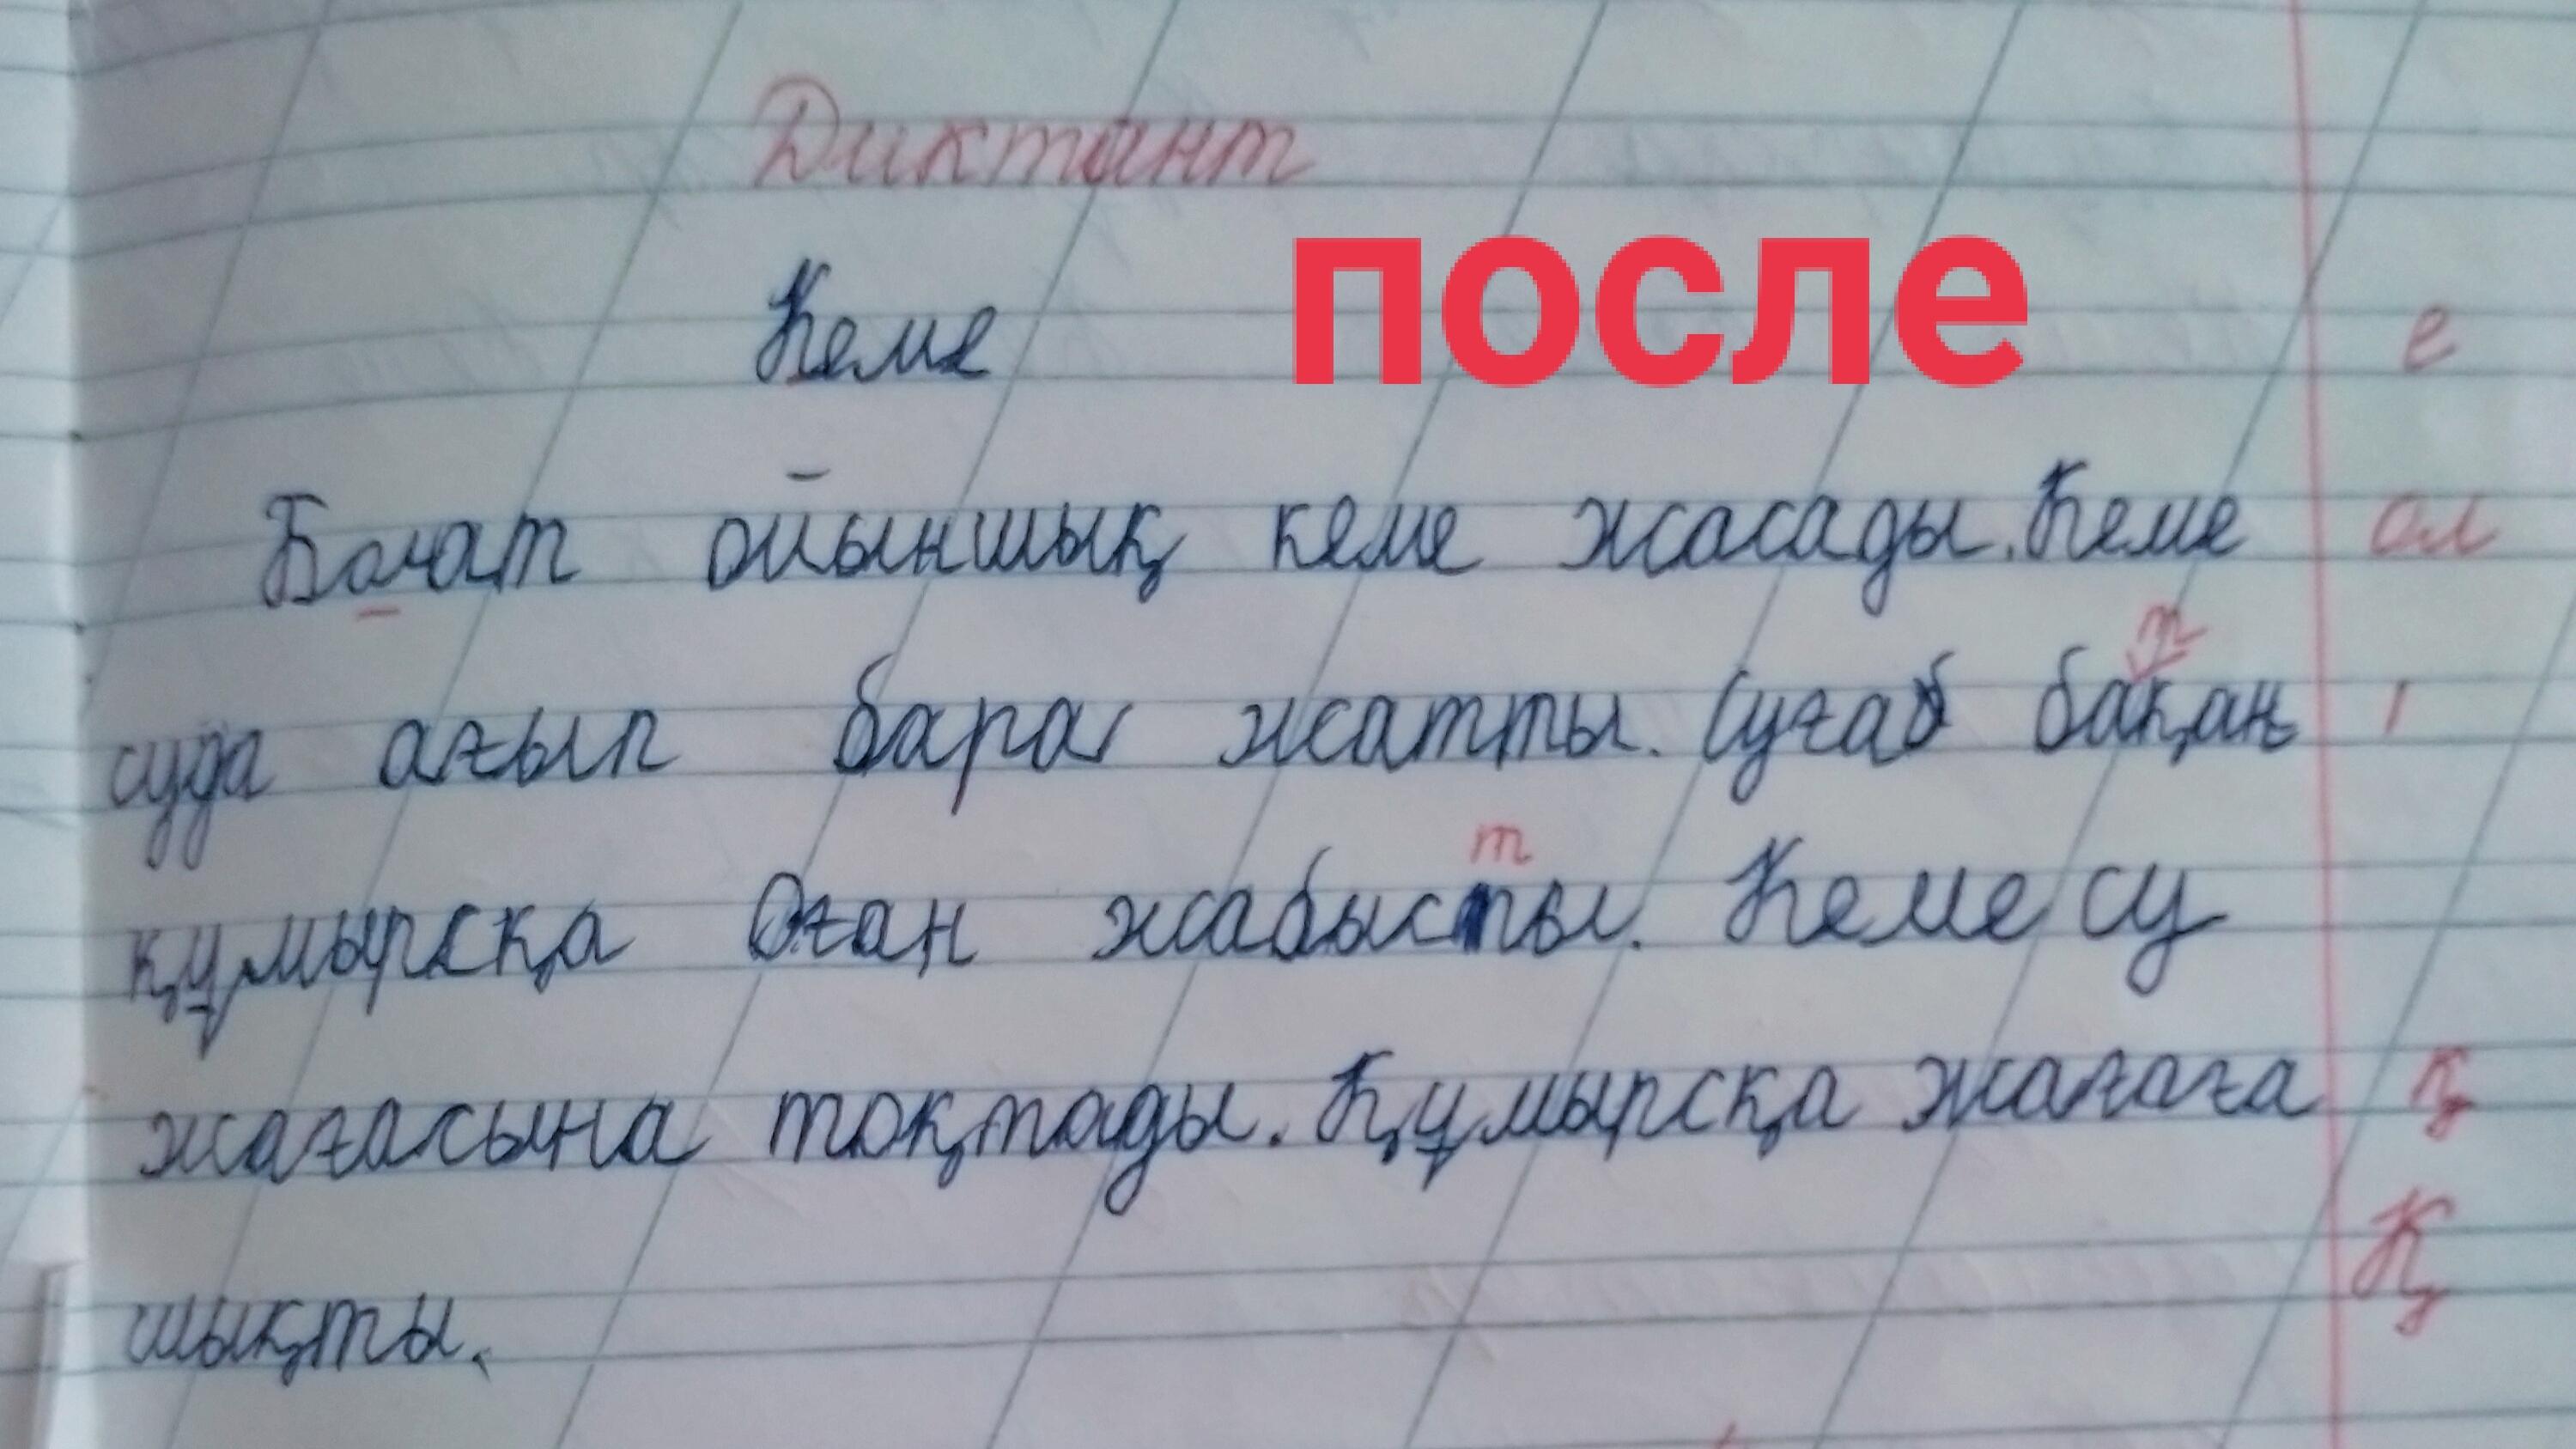 Диктант
Кеме
после
е
Болат ойыншық кеме жасады. Кеме
ол
т
суда ағып бара жатты. Суға бақан
т
құмырсқа Оған жабысты. Кеме су
жағасына тоқтады. Құмырсқа жағаға
қ
Қ
шықты.